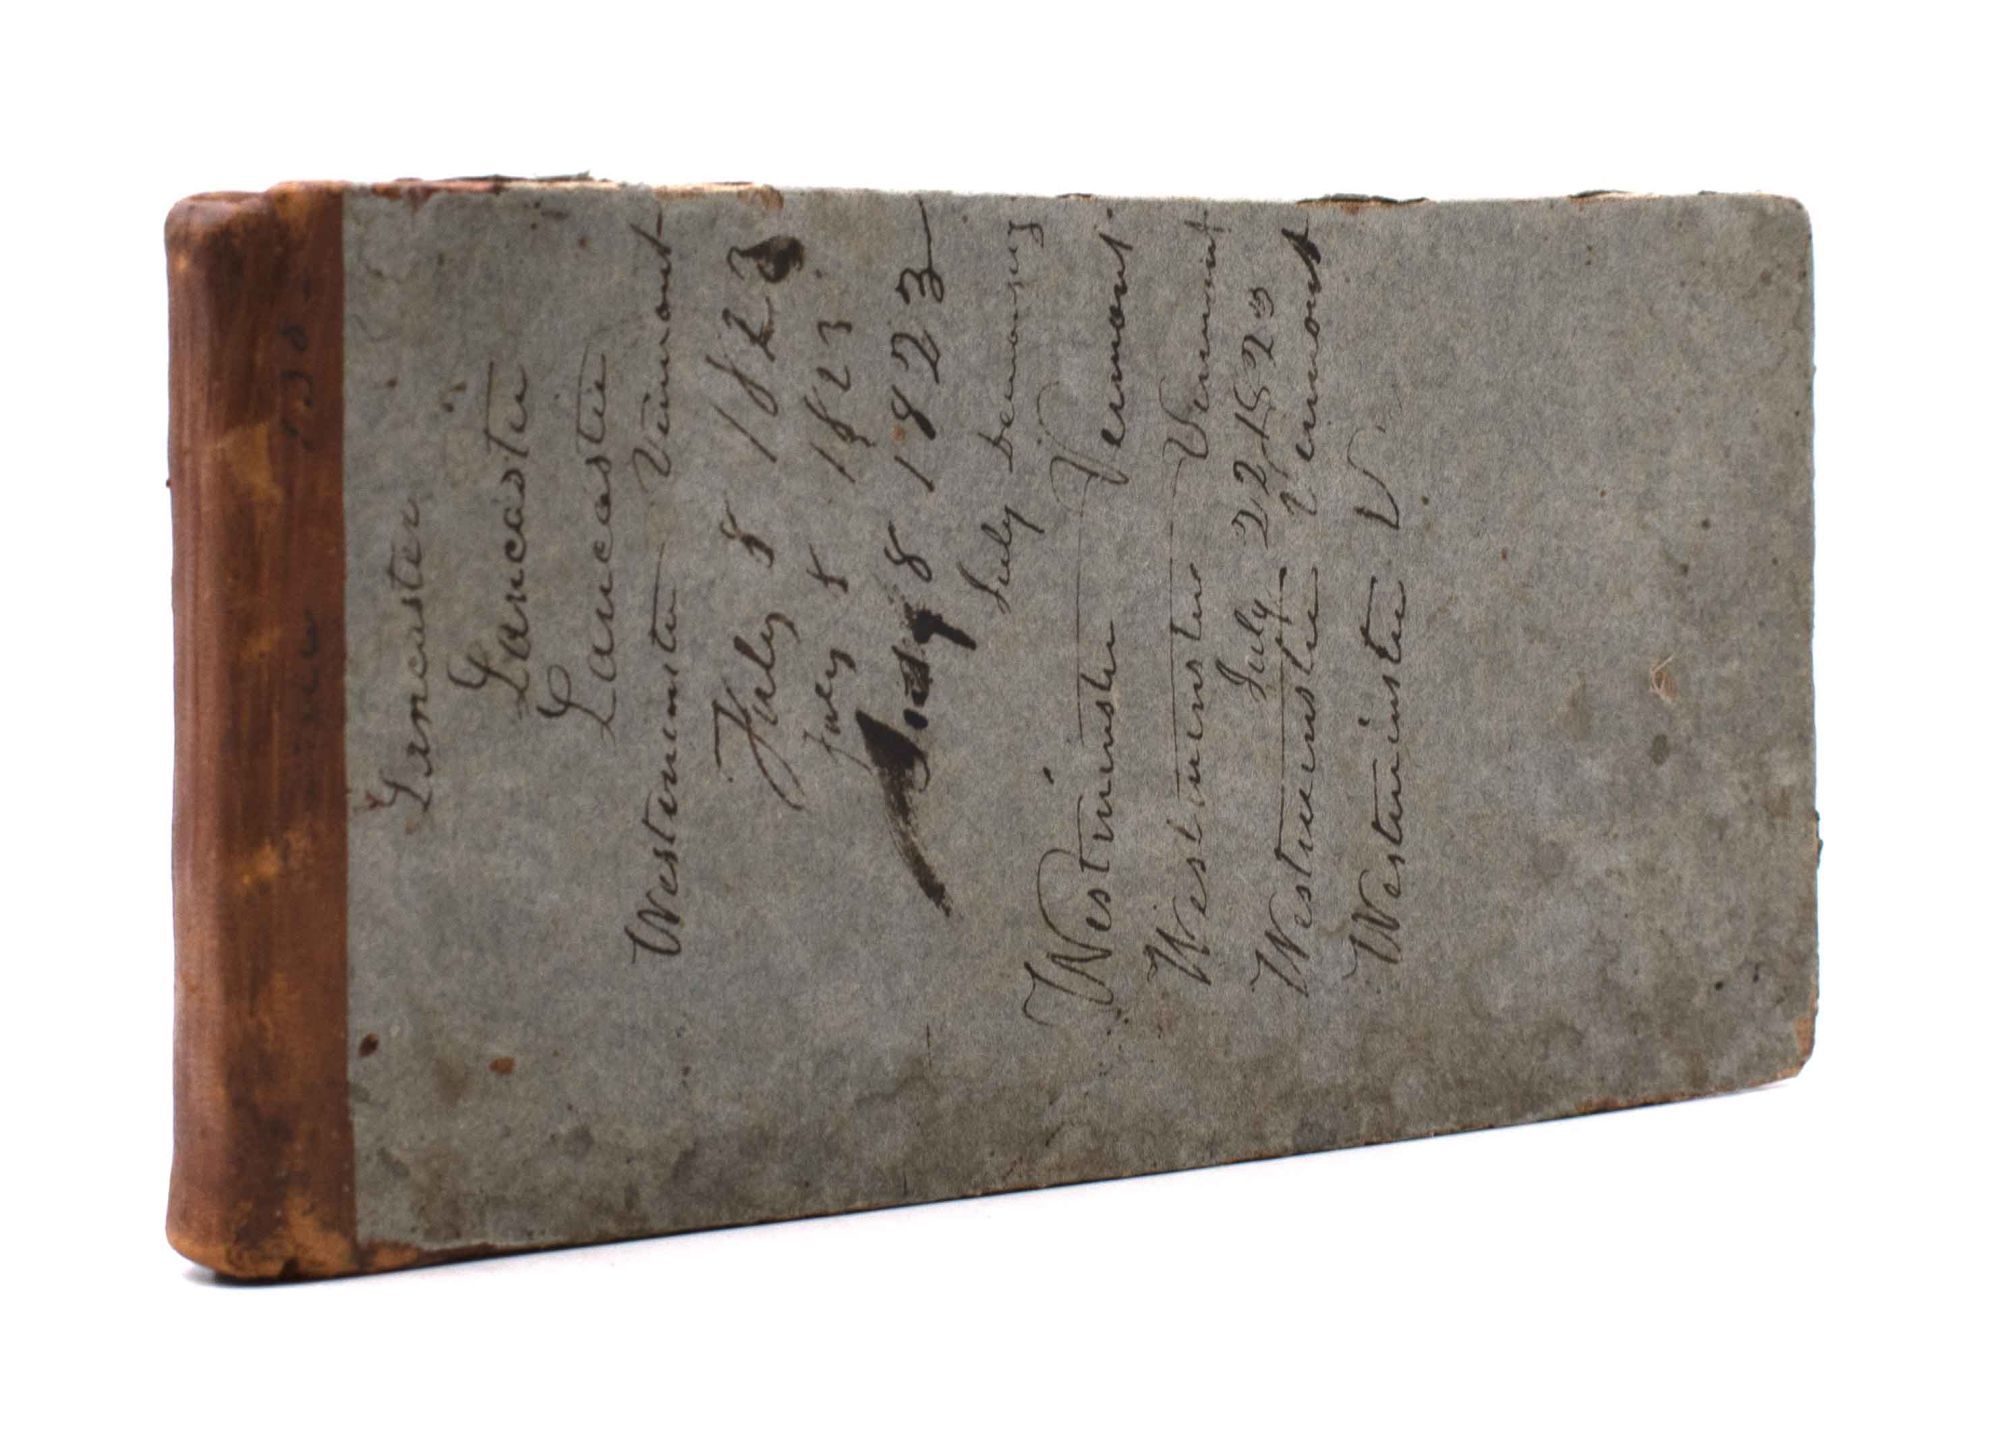 Lancaster
Lancaster
Lancaster
Westminster Vermont
July 8 1823
July 8 1823
July 8 1823
July
Westminster Vermont
Westminster Vermont
July 22 1823
Westminster Vermont
Westminster V